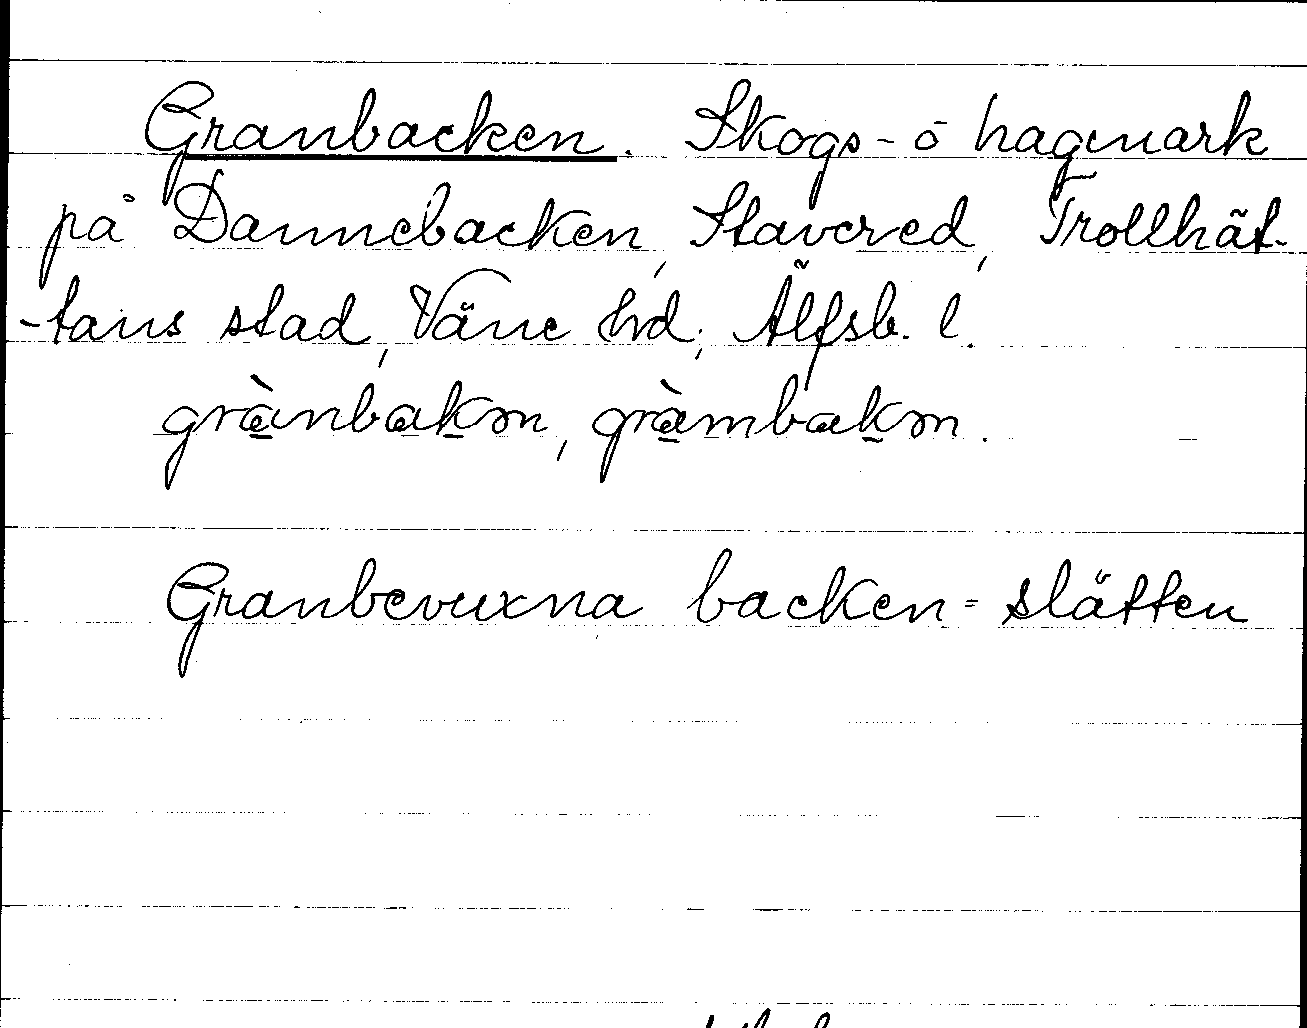 Granbacken. Skogs- o hagmark
på Dannebacken, Stavered, Trollhät-
-tans stad, Väne hd, Älfsb. l.
grànbakən, gràmbakən.
Granbevuxna backen = slätten